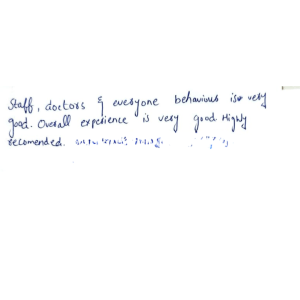 Staff, doctors & everyone behaviour is very
good. Overall experience is very good Highly
recomended.